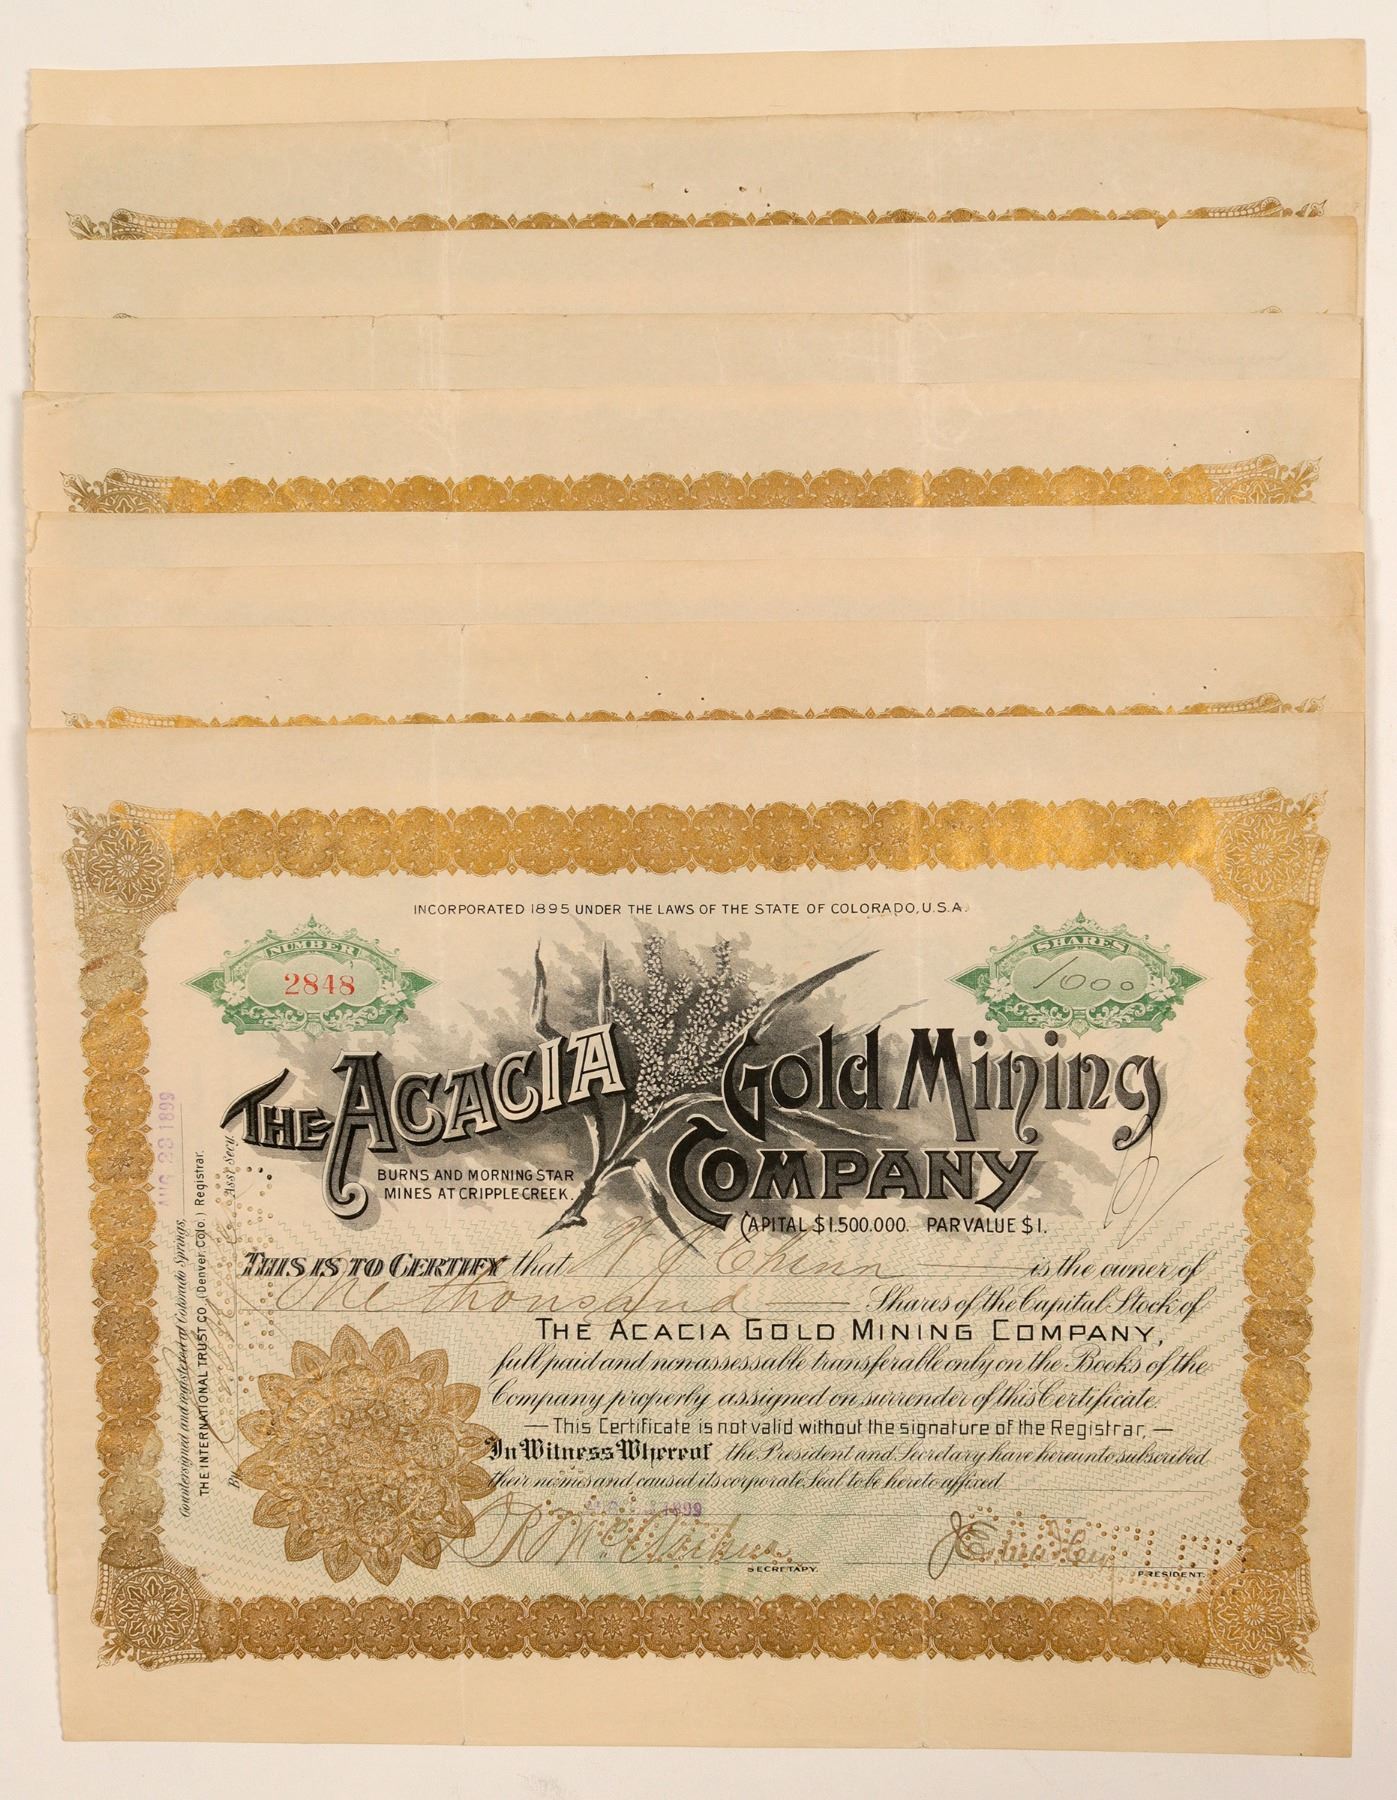 INCORPORATED 1895 UNDER THE LAWS OF THE STATE OF COLORADO, U.S.A.
NUMBER
2848
SHARES
1000
THE ACACIA Gold Mining
COMPANY
BURNS AND MORNING STAR
MINES AT CRIPPLE CREEK.
CAPITAL $1.500.000. PAR VALUE $1.
THIS IS TO CERTIFY that W J Chinn is the owner of
One thousand Shares of the Capital Stock of
THE ACACIA GOLD MINING COMPANY,
full paid and nonassessable transferable only on the Books of the
Company properly assigned on surrender of this Certificate.
— This Certificate is not valid without the signature of the Registrar, —
In Witness Whereof the President and Secretary have hereunto subscribed
their names and caused its corporate Seal to be hereto affixed
1899
SECRETARY.
PRESIDENT.
Countersigned and registered at Colorado Springs, AUG 23 1899
THE INTERNATIONAL TRUST CO., (Denver, Colo.) Registrar.
By Ass't Secy.